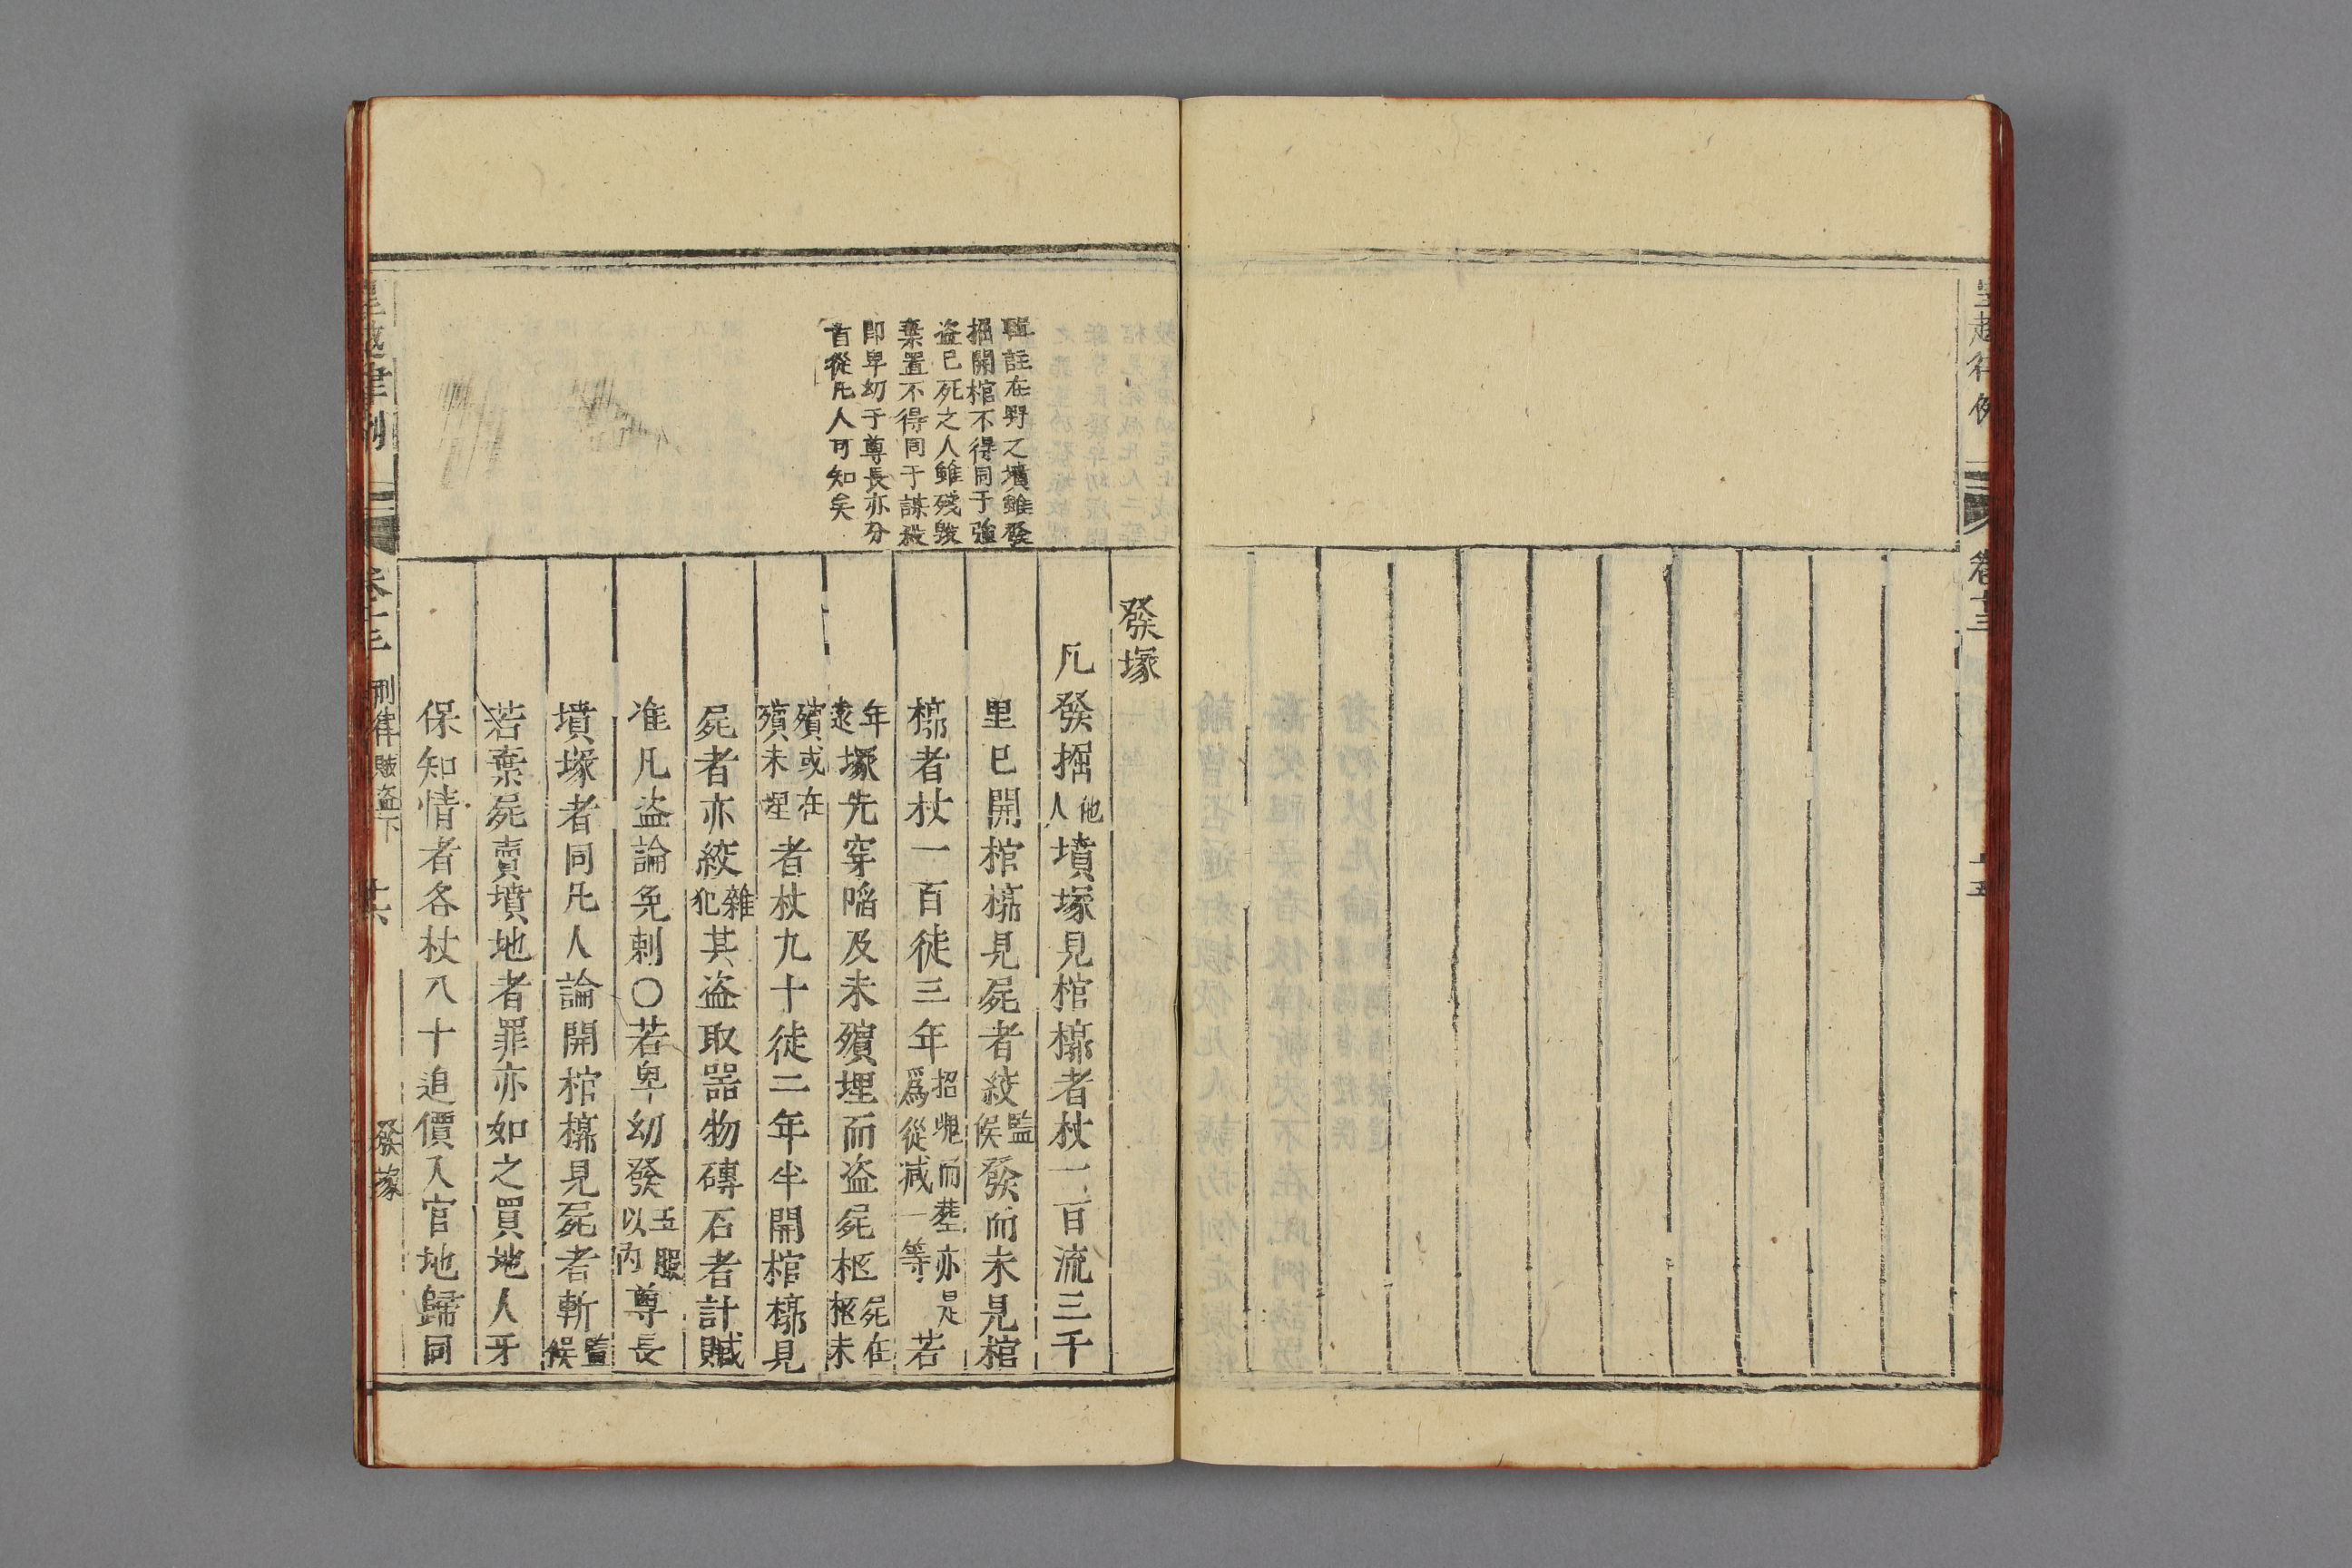 皇越律例
卷十三
十五
輯註在野之墳雖發
掘開棺不得同于強
盗已死之人雖殘毀
棄置不得同于謀殺
即卑幼于尊長亦分
首從凡人可知矣
發塚
凡發掘他人墳塚見棺槨者杖一百流三千
里已開棺槨見屍者絞監候發而未見棺
槨者杖一百徒三年招魂而塟亦是爲從减一等若
年逺塚先穿陷及未殯埋而盗屍柩屍在柩未
殯或在殯未埋者杖九十徒二年半開棺槨見
屍者亦絞雜犯其盗取噐物磚石者計贓
准凡盗論免刺〇若卑幼發五服以内尊長
墳塚者同凡人論開棺槨見屍者斬監候
若棄屍賣墳地者罪亦如之買地人牙
保知情者各杖八十追價入官地歸同
皇越律例
卷十三
刑律賊盗下
十六
發塚